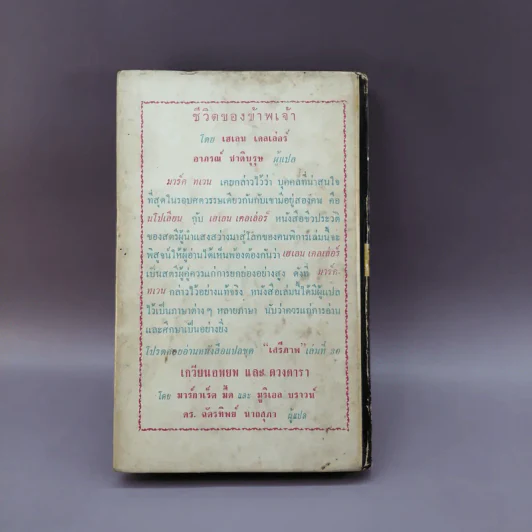 ชีวิตของข้าพเจ้า
โดย เฮเลน เคลเล่อร์
อาภรณ์ ชาติบุรุษ ผู้แปล
มาร์ค ทเวน เคยกล่าวไว้ว่า บุคคลที่น่าสนใจ
ที่สุดในรอบศตวรรษเดียวกันกับเขามีอยู่สองคน คือ
นโปเลียน กับ เฮเลน เคลเล่อร์ หนังสือชีวประวัติ
ของสตรีผู้นำแสงสว่างมาสู่โลกของคนพิการเล่มนี้จะ
พิสูจน์ให้ผู้อ่านได้เห็นพ้องต้องกันว่า เฮเลน เคลเล่อร์
เป็นสตรีผู้ควรแก่การยกย่องอย่างสูง ดังที่ มาร์ค
ทเวน กล่าวไว้อย่างแท้จริง หนังสือเล่มนี้ได้มีผู้แปล
ไว้เป็นภาษาต่าง ๆ หลายภาษา นับว่าควรแก่การอ่าน
และศึกษาเป็นอย่างยิ่ง
โปรดคอยอ่านหนังสือแปลชุด "เสรีภาพ" เล่นที่
เกวียนอพยพ และ ดวงดารา
โดย มาร์กาเร็ต มี๊ด และ มูริเอล บราวน์
ดร. ฉัตรทิพย์ นาถสุภา ผู้แปล